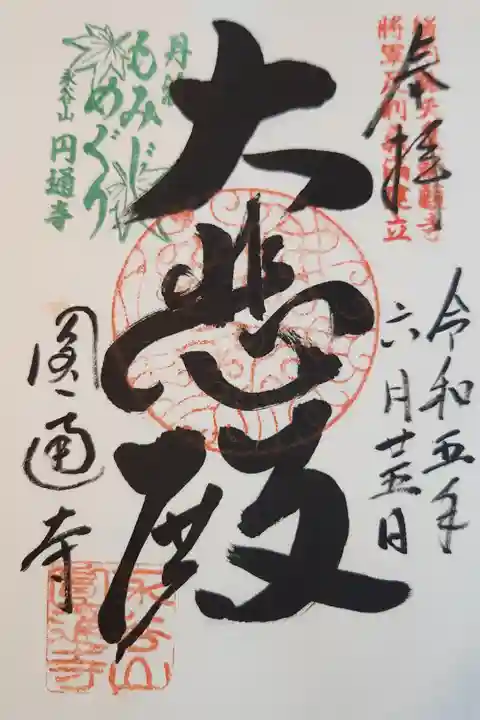 奉拝
将軍足利義満建立
令和五年
六月十五日
大悲殿
丹波
もみじ
めぐり
永谷山
円通寺
圓通寺